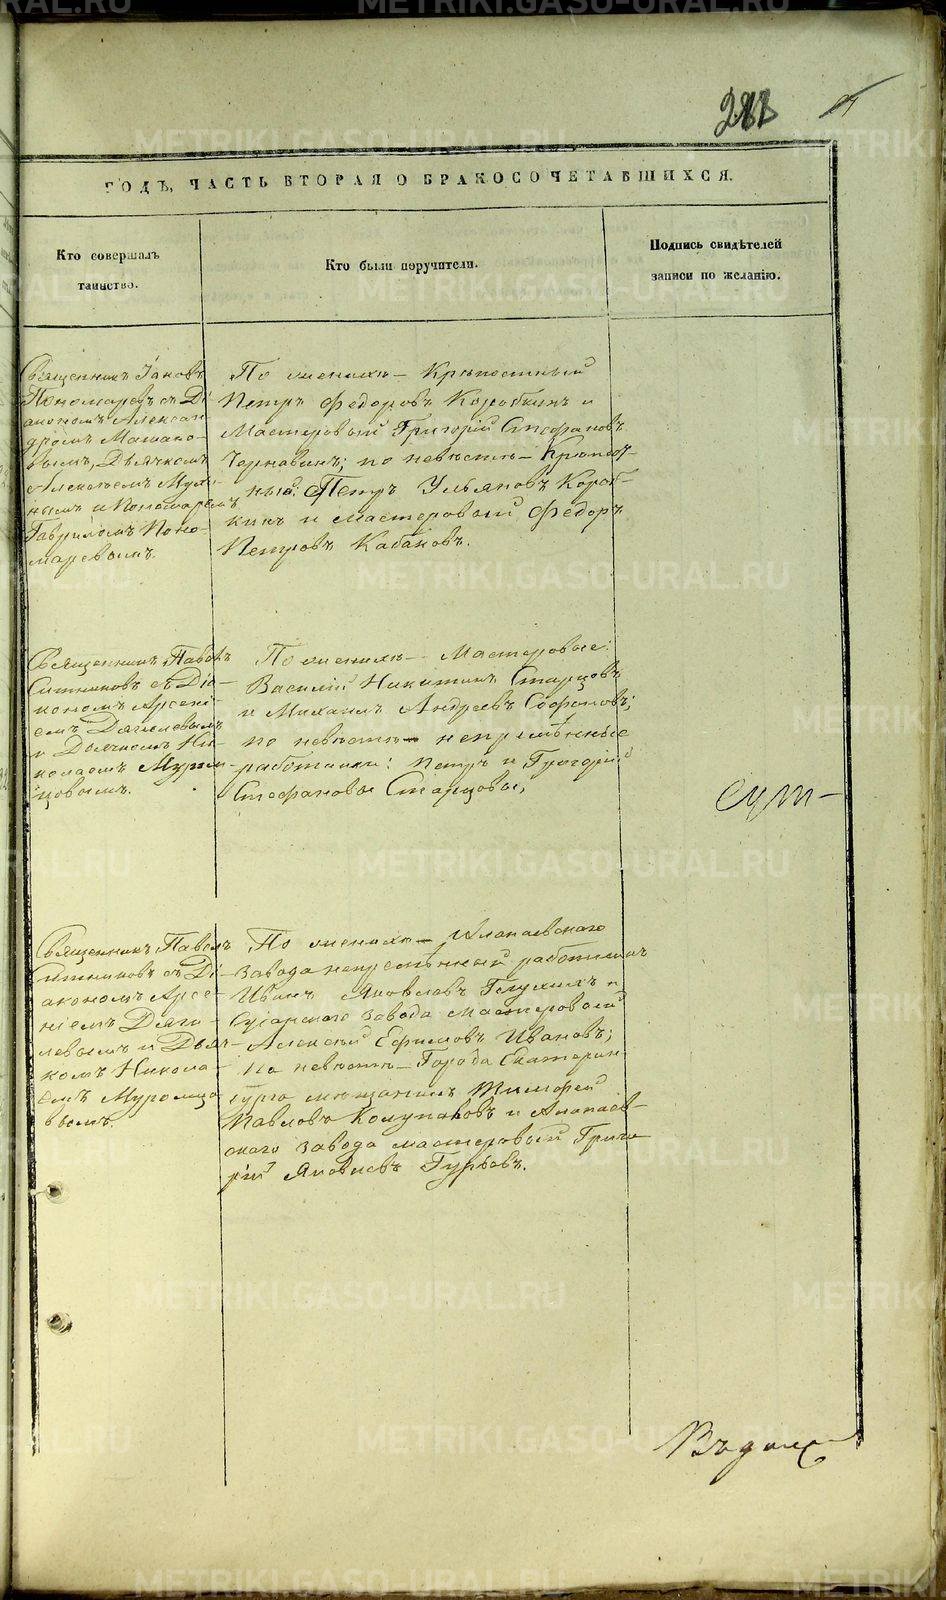 ГОДЪ, ЧАСТЬ ВТОРАЯ О БРАКОСОЧЕТАВШИХСЯ.
Кто совершалъ
таинство.
Кто были поручители.
Подпись свидѣтелей
записи по желанію.
Священникъ Іаковъ
Пономаревъ съ Ді
акономъ Алексан
дромъ
вымъ, Дьячкомъ
Алексѣемъ
нымъ и Пономаремъ
Гавріиломъ Поно-
маревымъ.
По женихѣ – Крѣпостный
Петръ Федоровъ Коробкинъ и
Мастеровый Григорій Стефановъ
Чернавинъ; по невѣстѣ – Крѣпост-
ный: Петръ Ульяновъ Короб-
кинъ и мастеровый Федоръ
Петровъ Кабаковъ.
Священникъ Павелъ
Ситниковъ съ Діа-
кономъ Арсені-
емъ Дягилевымъ
и Дьячкомъ Ни-
колаемъ Муром-
цовымъ.
По женихѣ – Мастеровые:
Василій Никитинъ Старцовъ
и Михаилъ Андреевъ
по невѣстѣ – непремѣнные
работники: Петръ и Григорій
Стефановы Старцовы,
Священникъ Павелъ
Ситниковъ съ Ді-
акономъ Арсе-
ніемъ Дяги-
левымъ и Дьяч-
комъ Никола-
емъ Муромцо
вымъ.
По женихѣ – Алапаевскаго
завода непремѣнный работникъ
Иванъ Яковлевъ Глухихъ и
Сусанскаго завода мастеровый
Алексѣй Ефимовъ Ивановъ;
по невѣстѣ – Города Екатерин
бурга мѣщанинъ Тимофей
Павловъ и Алапаев-
скаго завода мастеровый Григо
рій Яковлевъ Гурьевъ.